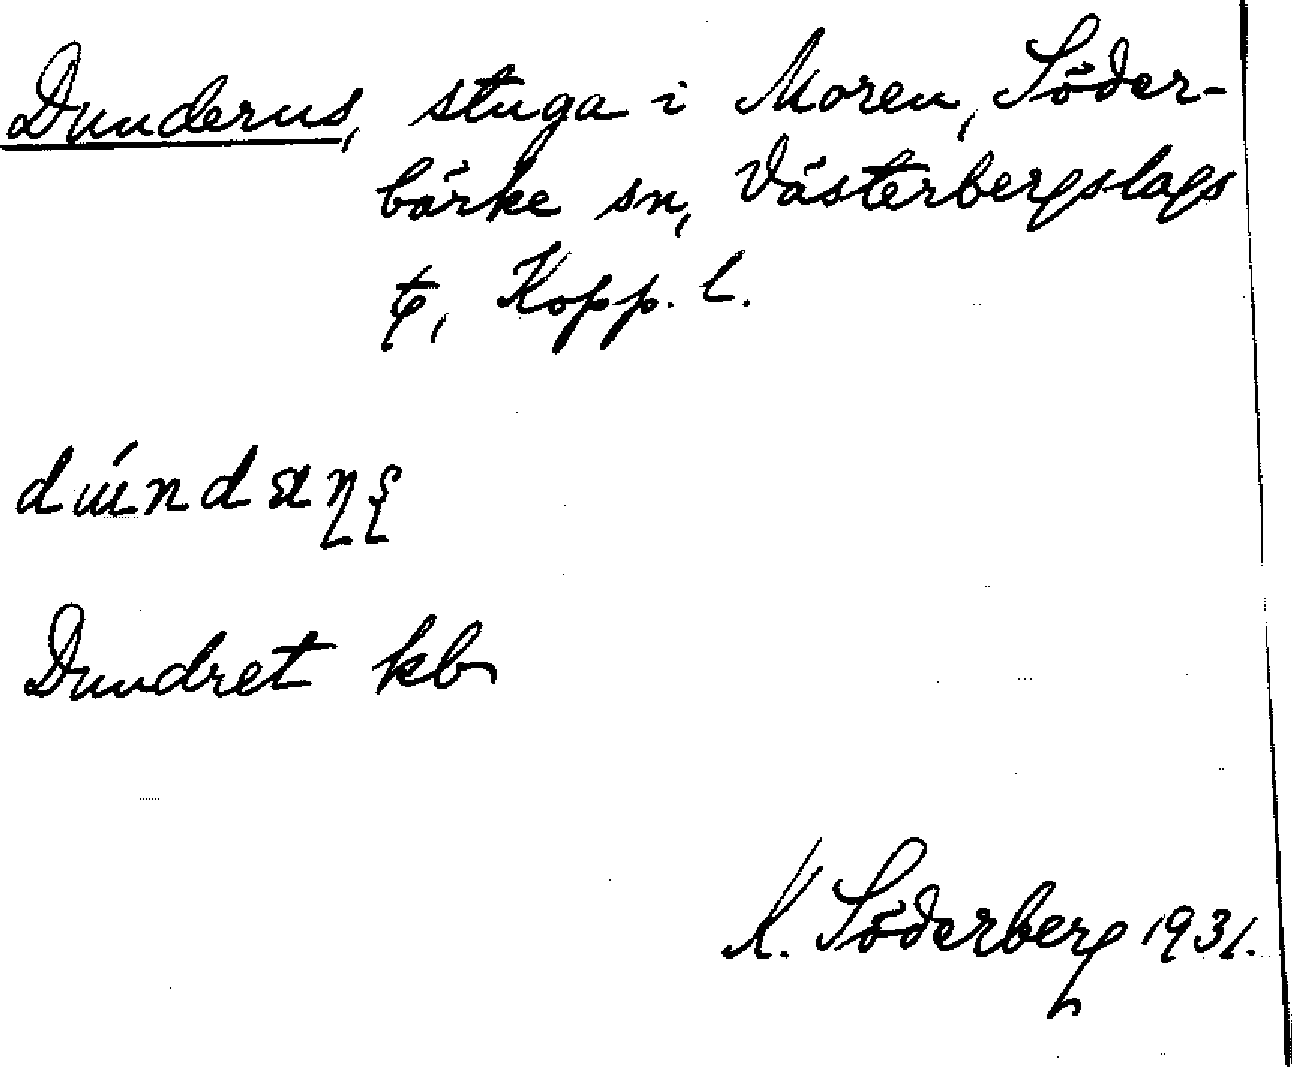 Dunderns, stuga i Moren, Söder-
bärke sn, Västerbergslags
t, Kopp. l.
Dundret kb
K. Söderberg 1931.